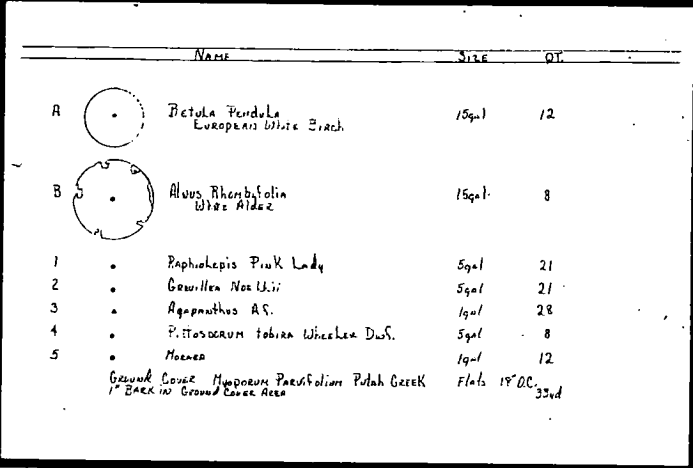 NAME SIZE QT.
A Betula Pendula 15gal 12
European White Birch
B Alnus Rhombifolia 15gal. 8
White Alder
1 Raphiolepis Pink Lady 5gal 21
2 Grevillea Noellii 5gal 21
3 Agapanthus Af. 1gal 28
4 Pittosporum tobira Wheeler Dwf. 5gal 8
5 Moraea 1gal 12
Ground Cover Myoporum Parvifolium Putah Creek Flats 18" O.C.
1" Bark in Ground Cover Area 33yd